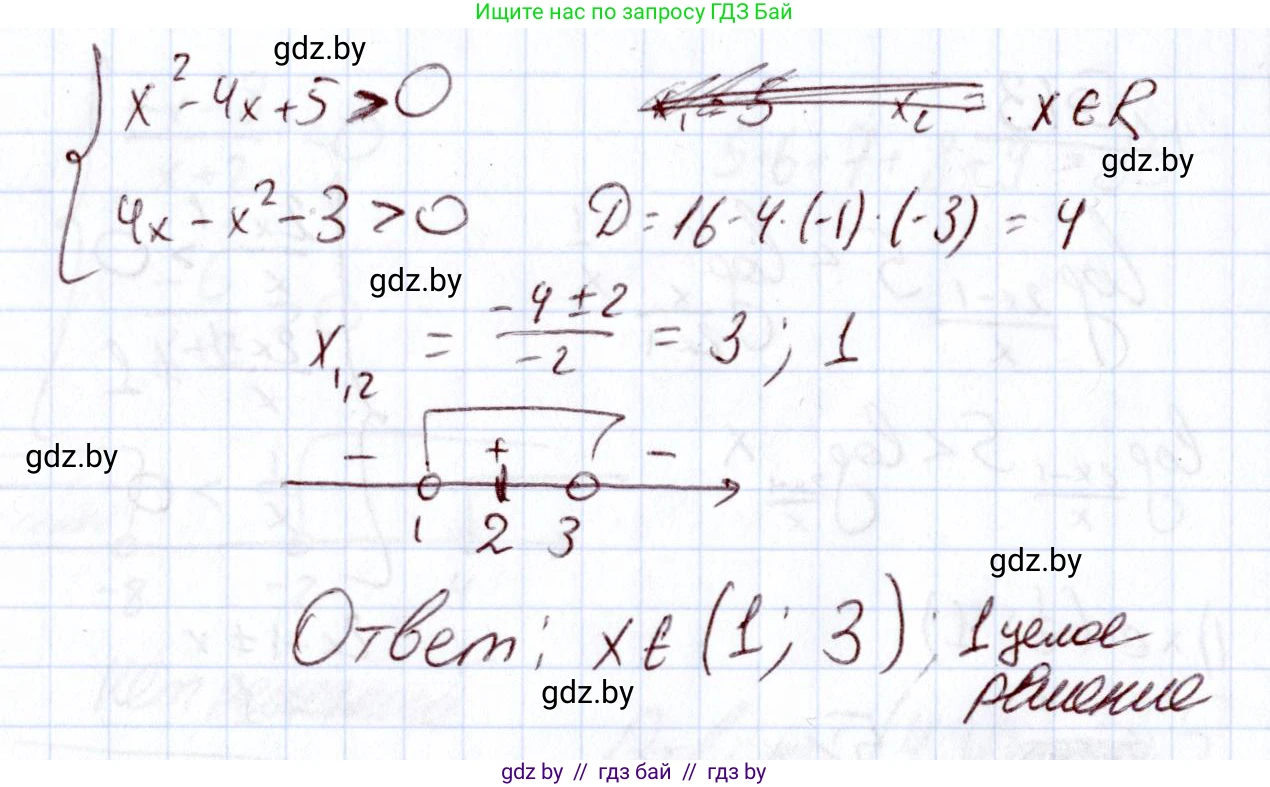 Ищите нас по запросу ГДЗ Бай
gdz.by
x² - 4x + 5 > 0 x ∈ R
gdz.by
4x - x² - 3 > 0 D = 16 - 4 · (-1) · (-3) = 4
gdz.by
x₁,₂ = (-4 ± 2)/(-2) = 3 ; 1
gdz.by
- + -
1 2 3
gdz.by
Ответ: x ∈ (1; 3); 1 целое
решение
gdz.by
gdz by // гдз бай // гдз by